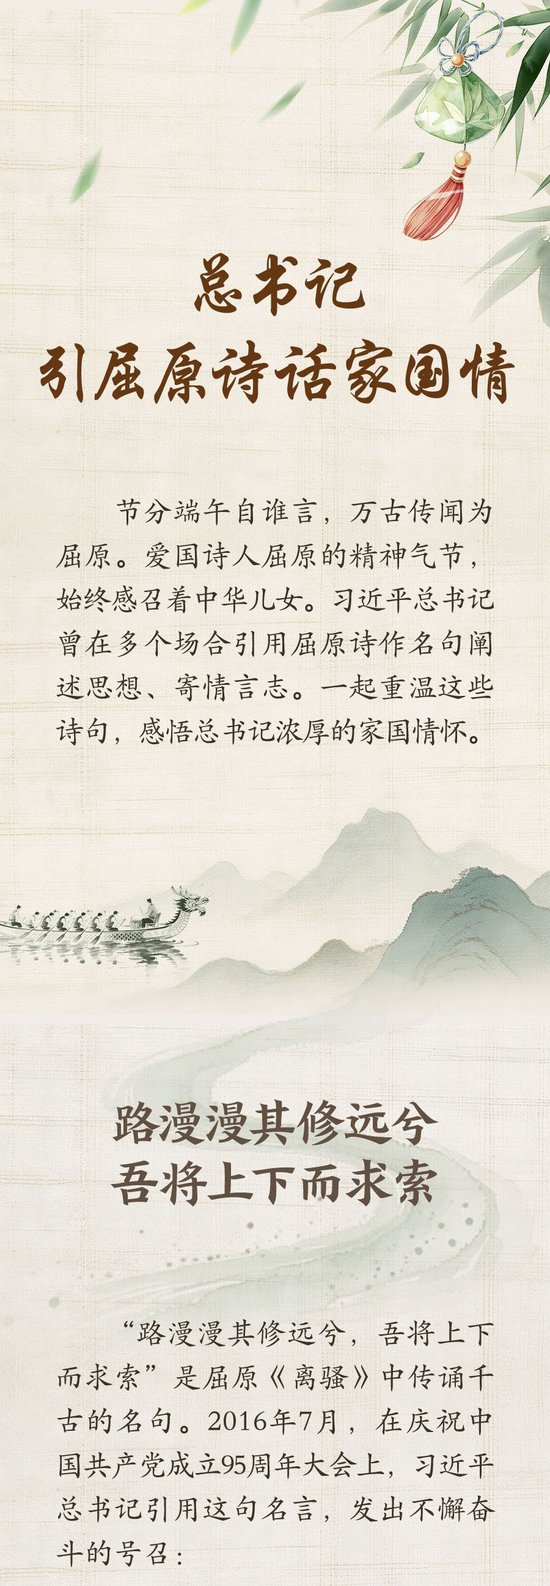 总书记
引屈原诗话家国情
节分端午自谁言，万古传闻为
屈原。爱国诗人屈原的精神气节，
始终感召着中华儿女。习近平总书记
曾在多个场合引用屈原诗作名句阐
述思想、寄情言志。一起重温这些
诗句，感悟总书记浓厚的家国情怀。
路漫漫其修远兮
吾将上下而求索
“路漫漫其修远兮，吾将上下
而求索”是屈原《离骚》中传诵千
古的名句。2016年7月，在庆祝中
国共产党成立95周年大会上，习近平
总书记引用这句名言，发出不懈奋
斗的号召：